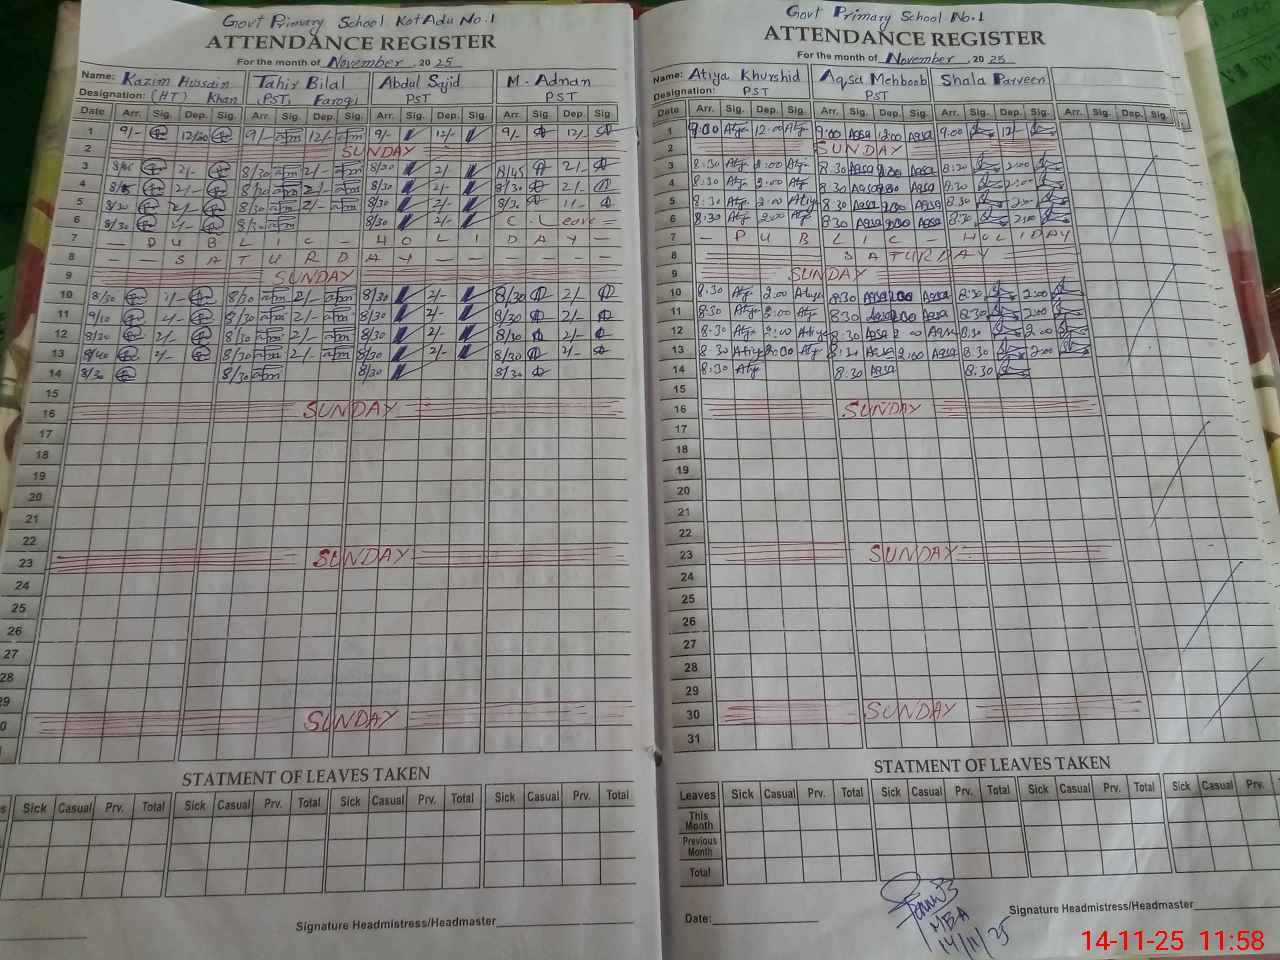 Govt Primary School KotAdu No.1
ATTENDANCE REGISTER
For the month of November 2025
Name: Kazim Hussain Tahir Bilal Abdul Sajid M. Adnan
Designation: (HT) Khan PST Faroqi PST PST
Date Arr. Sig. Dep. Sig. Arr. Sig. Dep. Sig. Arr. Sig. Dep. Sig. Arr. Sig. Dep. Sig.
1 9/- 12/- 9/- 12/- 9/- 12/- 9/- 12/-
2 SUNDAY
3 2/- 8/30 2/- 8/30 2/- 8/45 2/-
4 2/- 8/30 2/- 8/30 2/- 8/30 2/-
5 8/30 2/- 8/30 2/- 8/30 2/- 8/30
6 8/30 2/- 8/30 8/30 2/- C. Leave =
7 — P U B L I C - H O L I D A Y -
8 — — S A T U R D A Y — — — — —
9 SUNDAY
10 8/30 2/- 8/30 2/- 8/30 2/- 8/30 2/-
11 2/- 8/30 2/- 8/30 2/- 8/30 2/-
12 8/30 2/- 8/30 2/- 8/30 2/- 8/30 2/-
13 8/40 2/- 8/30 2/- 8/30 2/- 8/30 2/-
14 8/30 8/30 8/30 8/30
15
16 SUNDAY
17
18
19
20
21
22
23 SUNDAY
24
25
26
27
28
29
30 SUNDAY
STATMENT OF LEAVES TAKEN
Sick Casual Prv. Total Sick Casual Prv. Total Sick Casual Prv. Total Sick Casual Prv. Total
Signature Headmistress/Headmaster
Govt Primary School No.1
ATTENDANCE REGISTER
For the month of November 2025
Name: Atiya Khurshid Aqsa Mehboob Shala Parveen
Designation: PST PST
Date Arr. Sig. Dep. Sig. Arr. Sig. Dep. Sig. Arr. Sig. Dep. Sig. Arr. Sig. Dep. Sig.
1 9:00 Atiy 12:00 Atiy 9:00 Aqsa 12:00 Aqsa 9:00 12/-
2 SUNDAY
3 8:30 Atiy 2:00 Atiy 8:30 Aqsa 2:00 Aqsa 8:30 2:00
4 8:30 Atiy 2:00 Atiy 8:30 Aqsa 2:00 Aqsa 8:30 2:00
5 8:30 Atiy 2:00 Atiy 8:30 Aqsa 2:00 Aqsa 8:30 2:00
6 8:30 Atiy 2:00 Atiy 8:30 Aqsa 2:00 Aqsa 8:30 2:00
7 — P U B L I C — HOLIDAY
8 SATURDAY
9 SUNDAY
10 8:30 Atiy 2:00 Atiya 8:30 Aqsa 2:00 Aqsa 8:30 2:00
11 8:30 Atiy 2:00 Atiy 8:30 Aqsa 2:00 Aqsa 8:30 2:00
12 8:30 Atiy 2:00 Atiya 8:30 Aqsa 2:00 Aqsa 8:30 2:00
13 8:30 Atiy 2:00 Atiy 8:30 Aqsa 2:00 Aqsa 8:30 2:00
14 8:30 Atiy 8:30 Aqsa 8:30
15
16 SUNDAY
17
18
19
20
21
22
23 SUNDAY
24
25
26
27
28
29
30 SUNDAY
31
STATMENT OF LEAVES TAKEN
Leaves Sick Casual Prv. Total Sick Casual Prv. Total Sick Casual Prv. Total Sick Casual Prv.
This Month
Previous Month
Total
Date:
Signature Headmistress/Headmaster
MBA
14/11/25
14-11-25 11:58